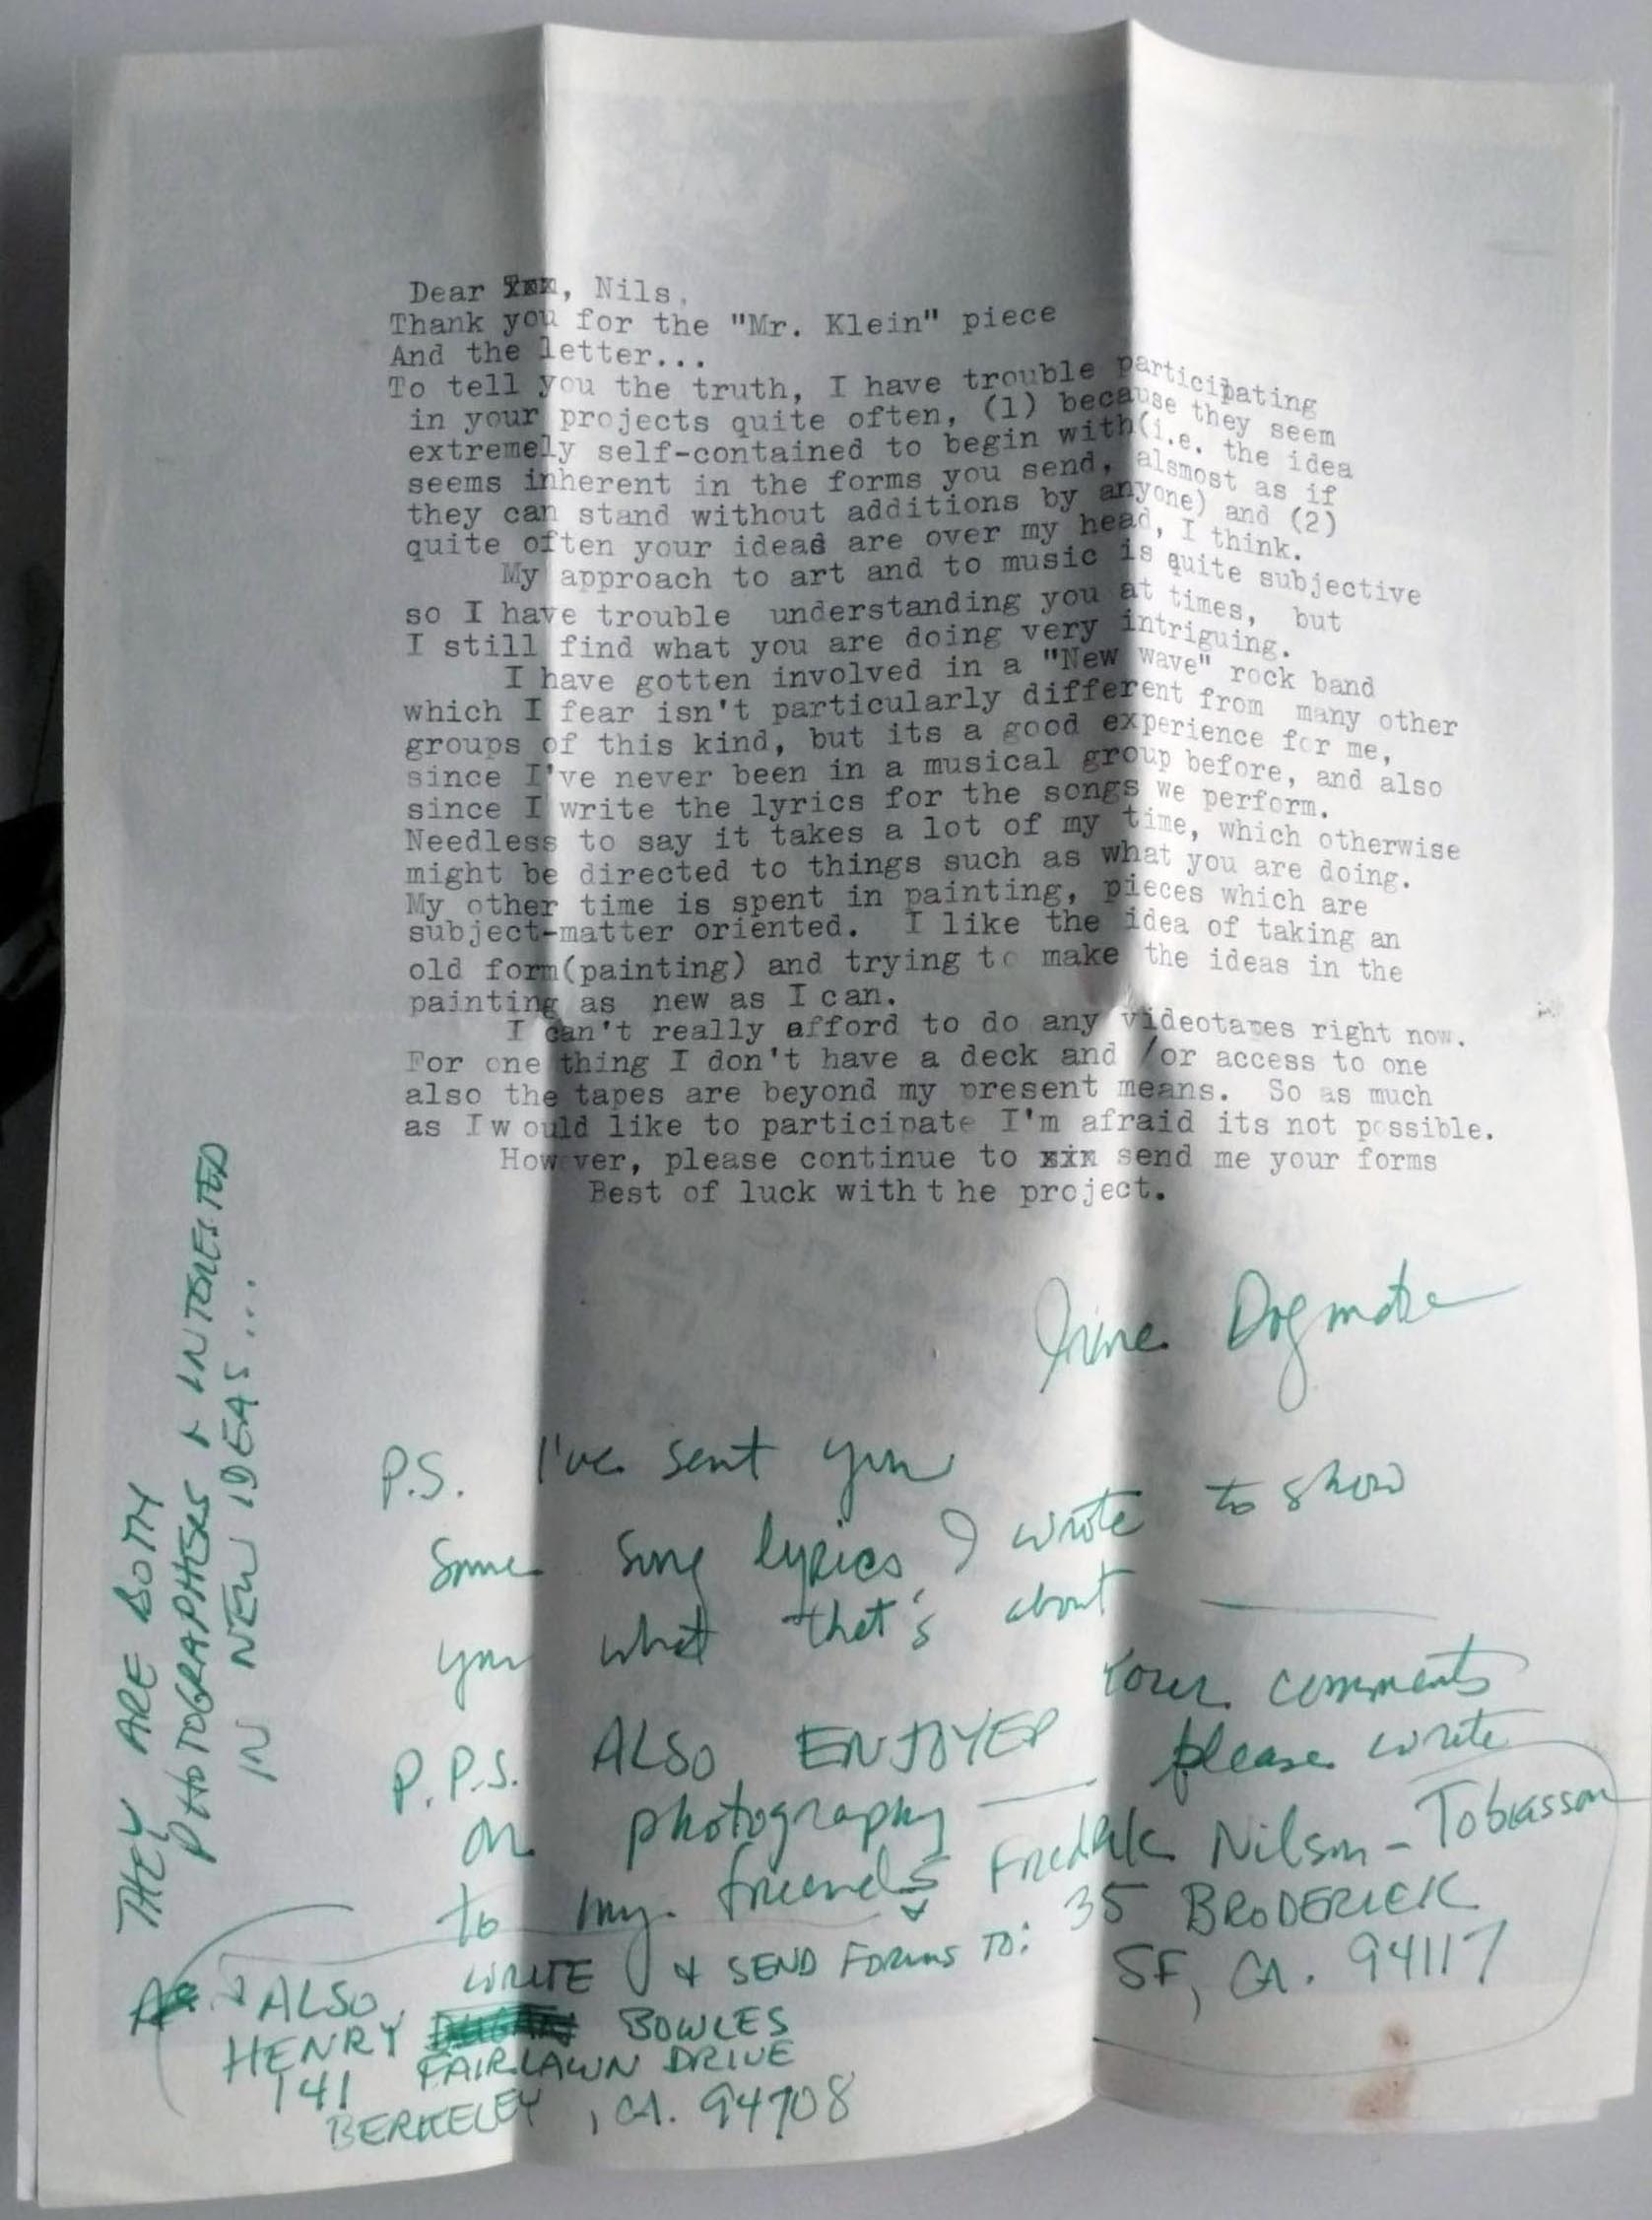 Dear xxx, Nils,
Thank you for the "Mr. Klein" piece
And the letter...
To tell you the truth, I have trouble participating
in your projects quite often, (1) because they seem
extremely self-contained to begin with(i.e. the idea
seems inherent in the forms you send, alsmost as if
they can stand without additions by anyone) and (2)
quite often your ideas are over my head, I think.
My approach to art and to music is quite subjective
so I have trouble understanding you at times, but
I still find what you are doing very intriguing.
I have gotten involved in a "New wave" rock band
which I fear isn't particularly different from many other
groups of this kind, but its a good experience for me,
since I've never been in a musical group before, and also
since I write the lyrics for the songs we perform.
Needless to say it takes a lot of my time, which otherwise
might be directed to things such as what you are doing.
My other time is spent in painting, pieces which are
subject-matter oriented. I like the idea of taking an
old form(painting) and trying to make the ideas in the
painting as new as I can.
I can't really afford to do any videotapes right now.
For one thing I don't have a deck and /or access to one
also the tapes are beyond my present means. So as much
as Iw ould like to participate I'm afraid its not possible.
However, please continue to xix send me your forms
Best of luck witht he project.
Irene Dogmatic
P.S. I've sent you
some song lyrics I wrote to show
you what that's about
P.P.S. ALSO ENJOYED your comments
on photography — please write
to my friends Fredrik Nilson-Tobiasson
35 BRODERICK
SF, CA. 94117
ALSO, WRITE & SEND FORMS TO:
HENRY BOWLES
141 FAIRLAWN DRIVE
BERKELEY, CA. 94708
THEY ARE BOTH
PHOTOGRAPHERS & INTERESTED
IN NEW IDEAS...